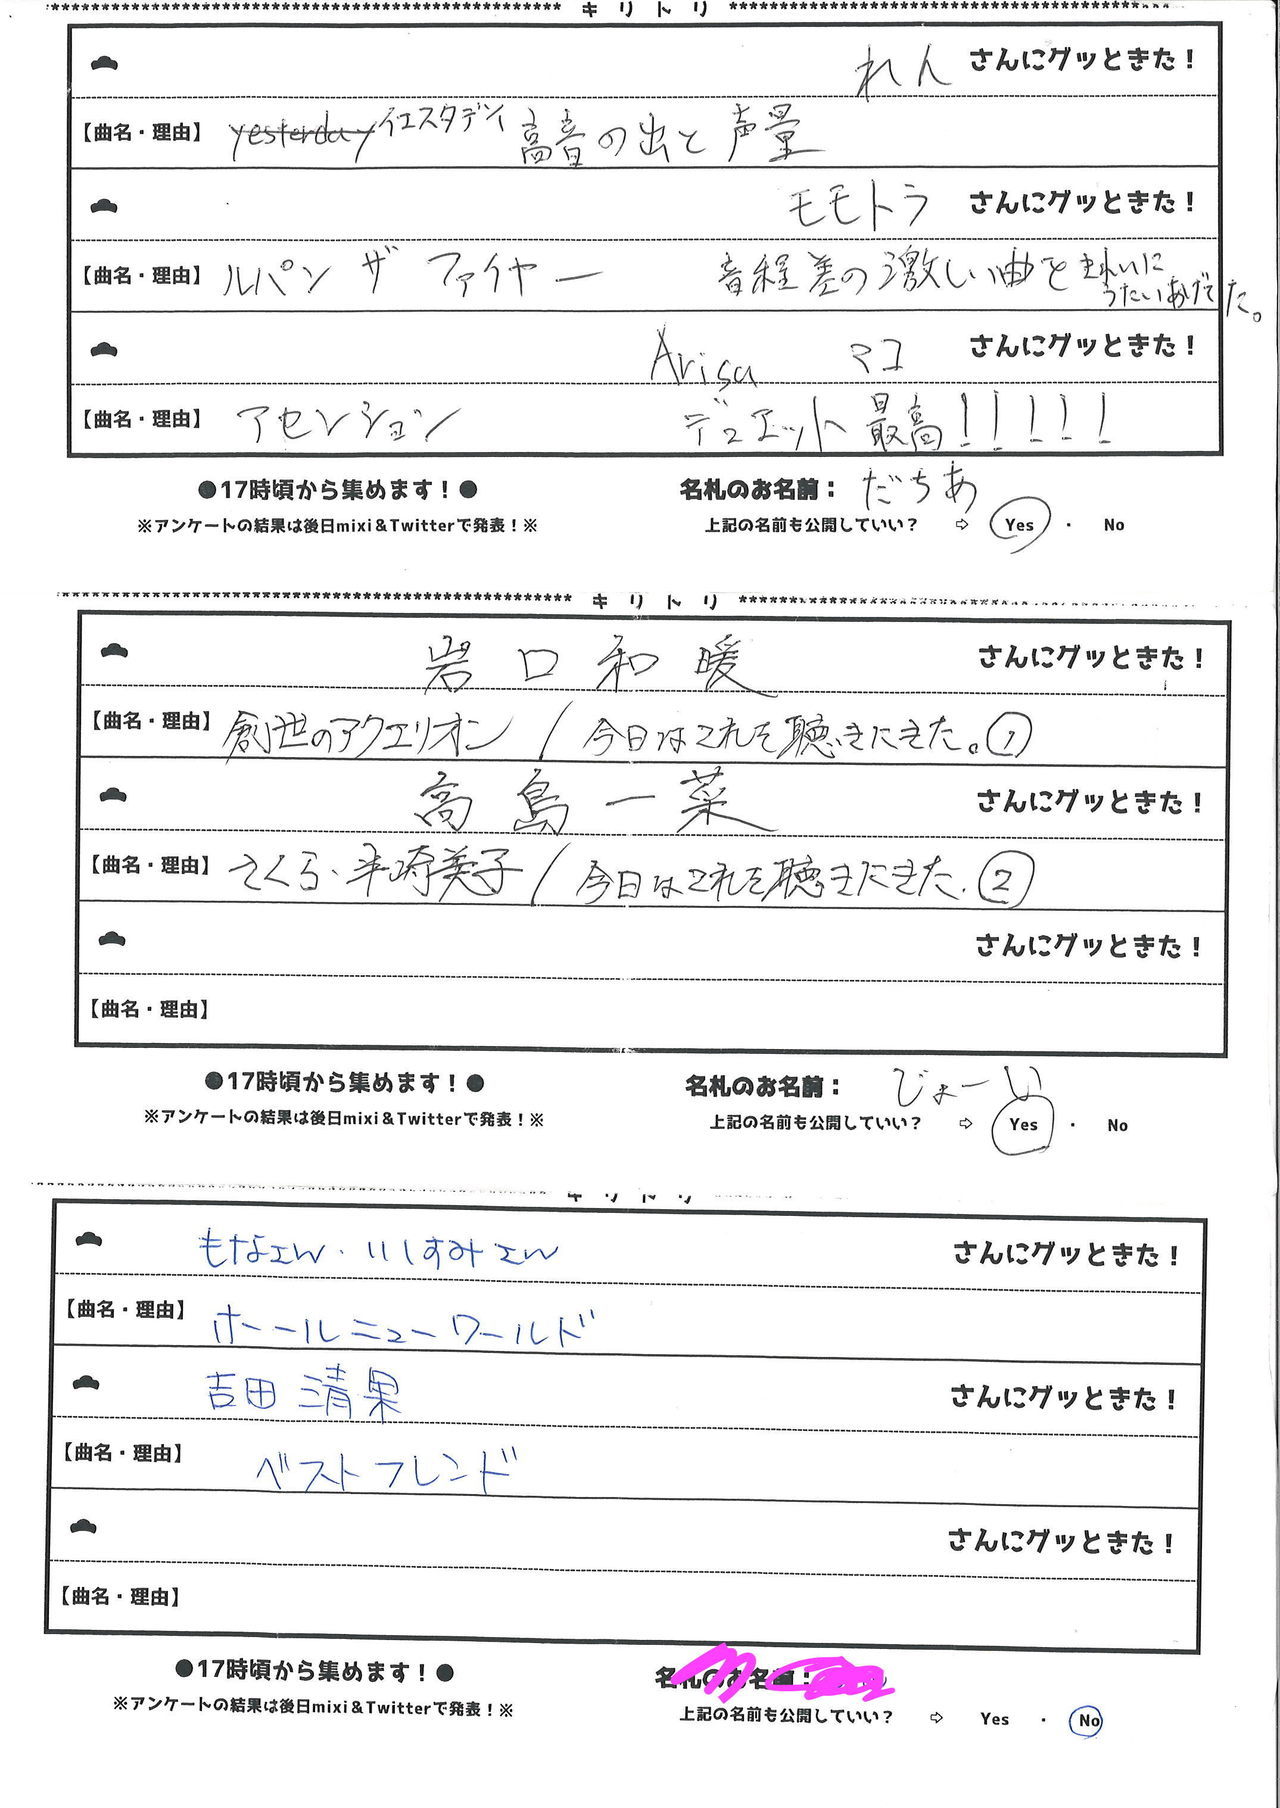 キリトリ
れん さんにグッときた！
【曲名・理由】 yesterday イエスタデイ 高音の出と声量
モモトラ さんにグッときた！
【曲名・理由】 ルパン ザ ファイヤー 音程差の激しい曲をきれいにうたいあげてた。
Arisa マコ さんにグッときた！
【曲名・理由】 アセンション デュエット最高！！！！！
●17時頃から集めます！● 名札のお名前： だちあ
※アンケートの結果は後日mixi＆Twitterで発表！※ 上記の名前も公開していい？ ⇨ Yes ・ No
キリトリ
岩口和暖 さんにグッときた！
【曲名・理由】 創世のアクエリオン / 今日はこれを聴きにきた。①
高島一菜 さんにグッときた！
【曲名・理由】 さくら・半崎美子 / 今日はこれを聴きにきた. ②
さんにグッときた！
【曲名・理由】
●17時頃から集めます！● 名札のお名前： じょーい
※アンケートの結果は後日mixi＆Twitterで発表！※ 上記の名前も公開していい？ ⇨ Yes ・ No
キリトリ
さんにグッときた！
【曲名・理由】 ホールニューワールド
吉田清果 さんにグッときた！
【曲名・理由】 ベストフレンド
さんにグッときた！
【曲名・理由】
●17時頃から集めます！● 名札のお名前：
※アンケートの結果は後日mixi＆Twitterで発表！※ 上記の名前も公開していい？ ⇨ Yes ・ No